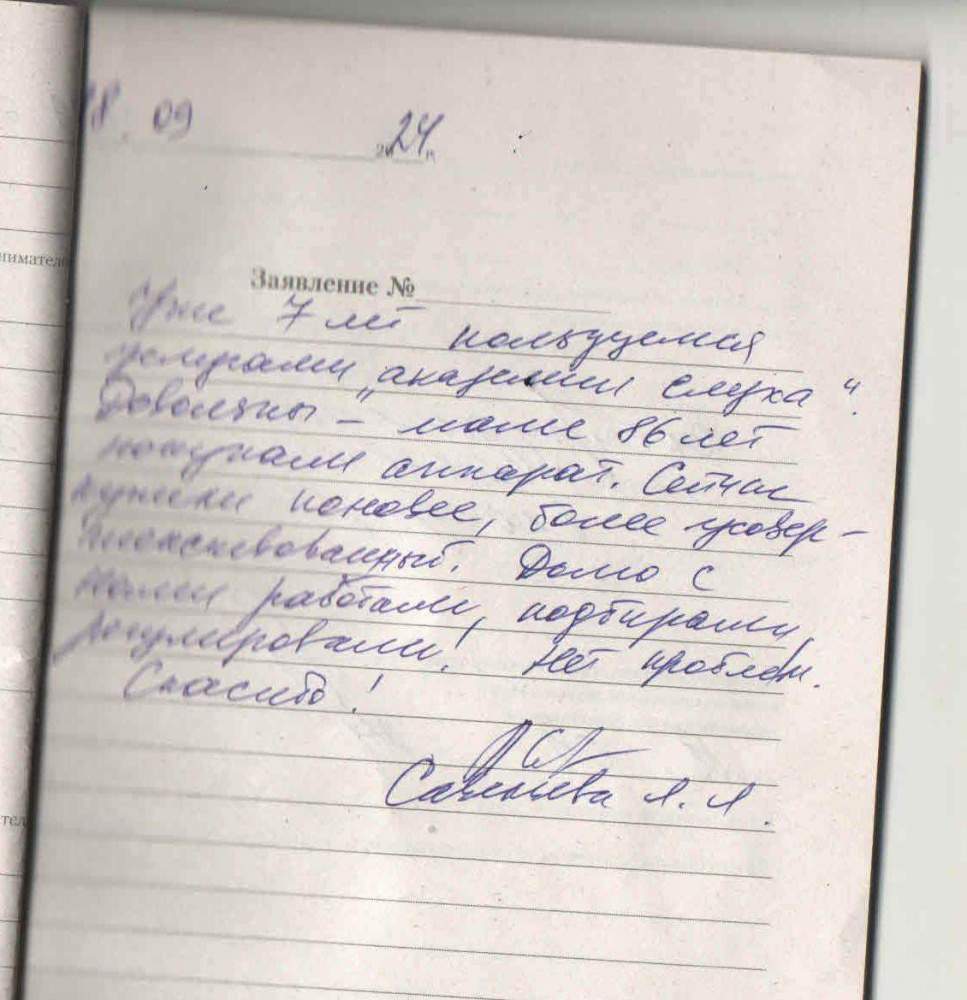 18. 09 2024
нимател
Заявление №
Уже 7 лет пользуемся
услугами "академии слуха".
Довольны – маме 86 лет
покупали аппарат. Сейчас
купили поновее, более усовер-
шенствованный. Долго с
нами работали, подбирали,
регулировали! Нет проблем.
Спасибо!
Л. Л.
тел